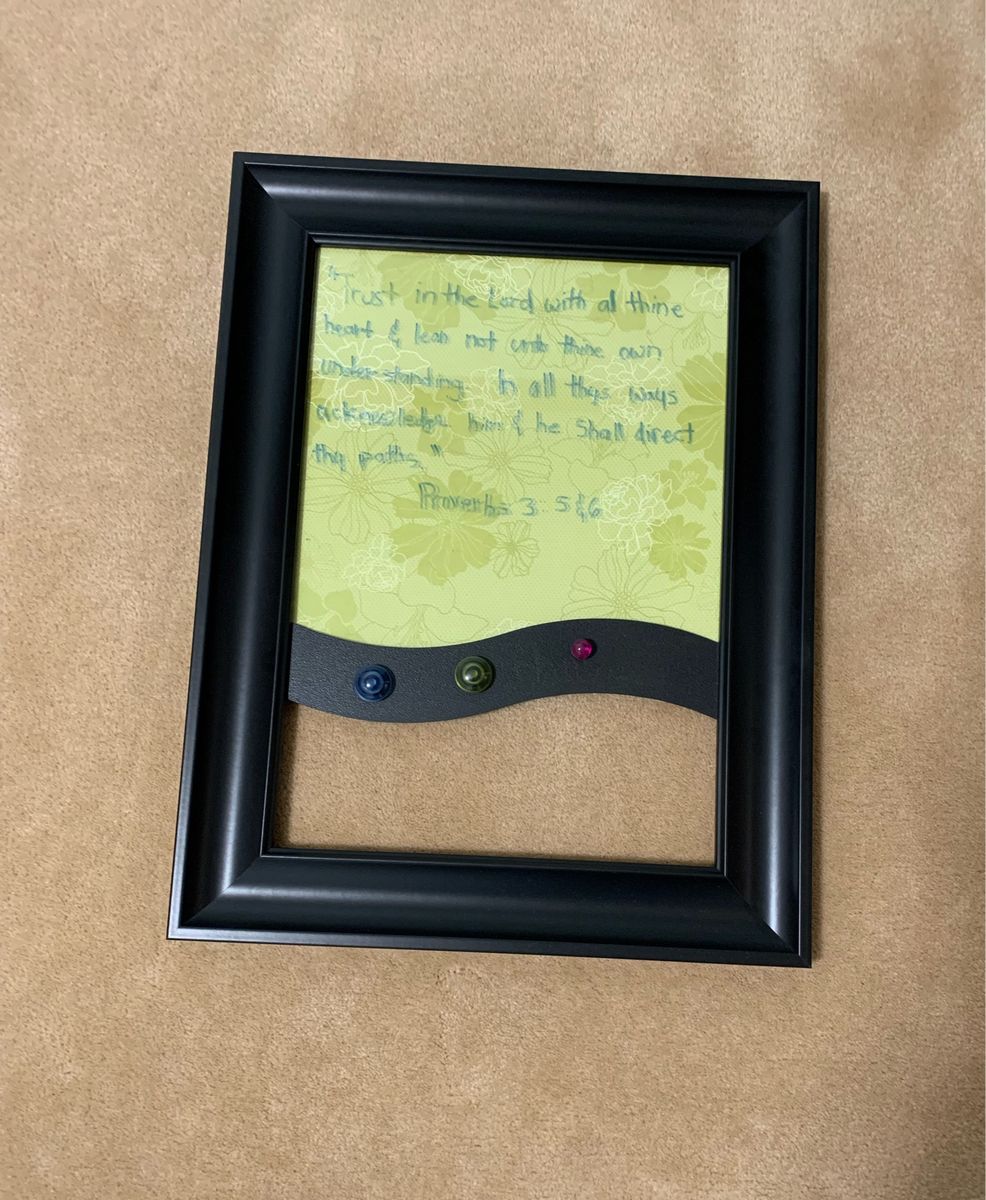 "Trust in the Lord with al thine
heart & lean not unto thine own
understanding. In all thys ways
acknowledge him & he shall direct
thy paths."
Proverbs 3: 5 & 6